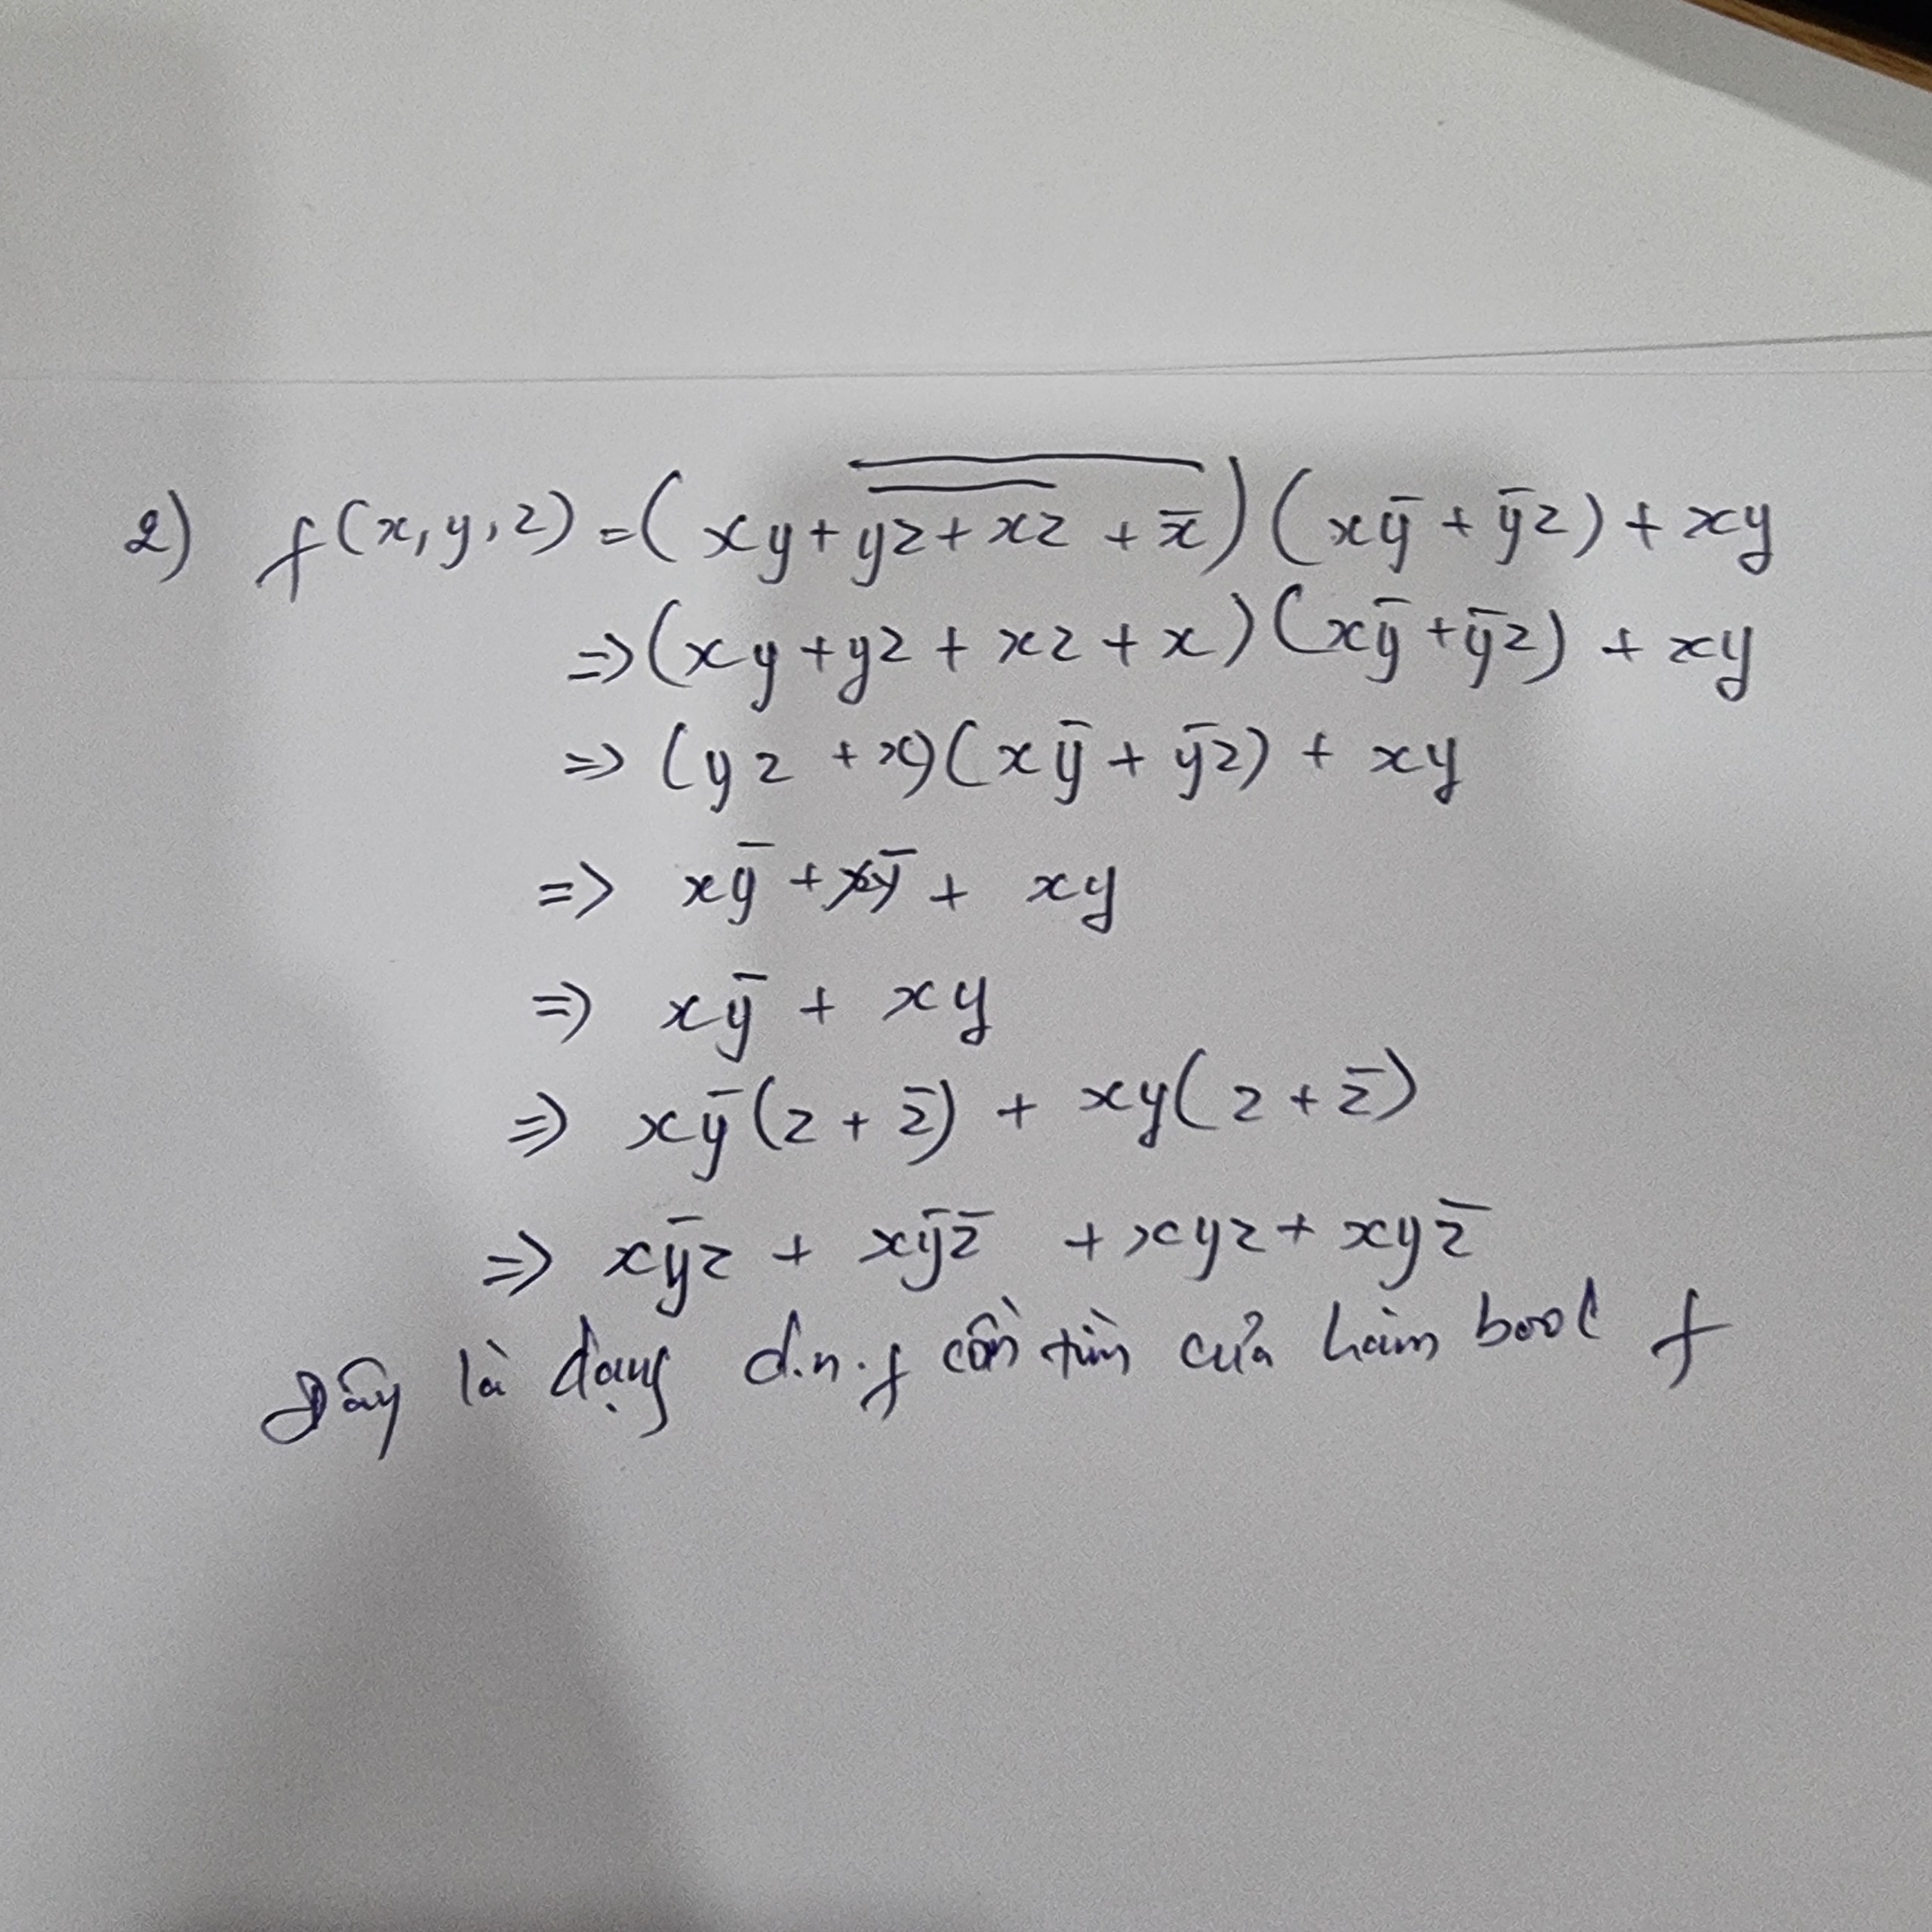 2) f(x,y,z) = (xy + \overline{\overline{\overline{yz + xz}} + x̄})(xȳ + ȳz) + xy
=> (xy + yz + xz + x)(xȳ + ȳz) + xy
=> (yz + x)(xȳ + ȳz) + xy
=> xȳ + + xy
=> xȳ + xy
=> xȳ(z + z̄) + xy(z + z̄)
=> xȳz + xȳz̄ + xyz + xyz̄
Đây là dạng d.n.f cần tìm của hàm bool f